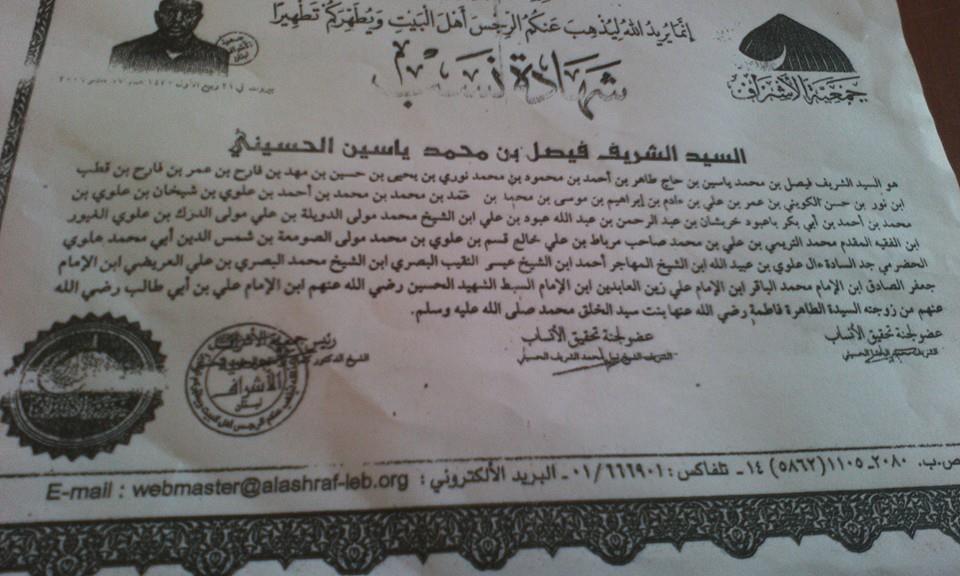 إنما يريد الله ليذهب عنكم الرجس أهل البيت ويطهركم تطهيرا
شهادة نسب
جمعية الأشراف
بيروت في ٢١ ربيع الأول ١٤٣٠
السيد الشريف فيصل بن محمد ياسين الحسيني
هو السيد الشريف فيصل بن محمد ياسين بن حاج طاهر بن أحمد بن محمود بن محمد نوري بن يحيى بن حسين بن مهد بن قارح بن عمر بن قارح بن قطب
ابن نور بن حسن الكويتي بن عمر بن علي بن بن إبراهيم بن موسى بن محمد بن محمد بن محمد بن محمد بن أحمد بن علوي بن شيخان بن علوي بن
محمد بن أحمد بن أبي بكر باعبود خريشان بن عبد الرحمن بن عبد الله عبود بن علي ابن الشيخ محمد مولى الدويلة بن علي مولى الدرك بن علوي الغيور
ابن الفقيه المقدم محمد التريمي بن علي بن محمد صاحب مرباط بن علي خالع قسم بن علوي بن محمد مولى الصومعة بن شمس الدين أبي محمد علوي
الحضرمي جد السادة ءال علوي بن عبيد الله ابن الشيخ المهاجر أحمد ابن الشيخ عيسى النقيب البصري ابن الشيخ محمد البصري بن علي العريضي ابن الإمام
جعفر الصادق ابن الإمام محمد الباقر ابن الإمام علي زين العابدين ابن الإمام السبط الشهيد الحسين رضي الله عنهم ابن الإمام علي بن أبي طالب رضي الله
عنهم من زوجته السيدة الطاهرة فاطمة رضي الله عنها بنت سيد الخلق محمد صلى الله عليه وسلم.
عضو لجنة تحقيق الأنساب
عضو لجنة تحقيق الأنساب
الشريف الشيخ محمد الشريف الحسيني
رئيس جمعية الأشراف
الشيخ الدكتور
الأشراف
ص.ب. ٢٠٨٠ـ١١٠٥ (٥٨٦٢) ١٤ـ تلفاكس: ٠١/٦٦٦٩٠١ـ البريد الألكتروني: E-mail : webmaster@alashraf-leb.org